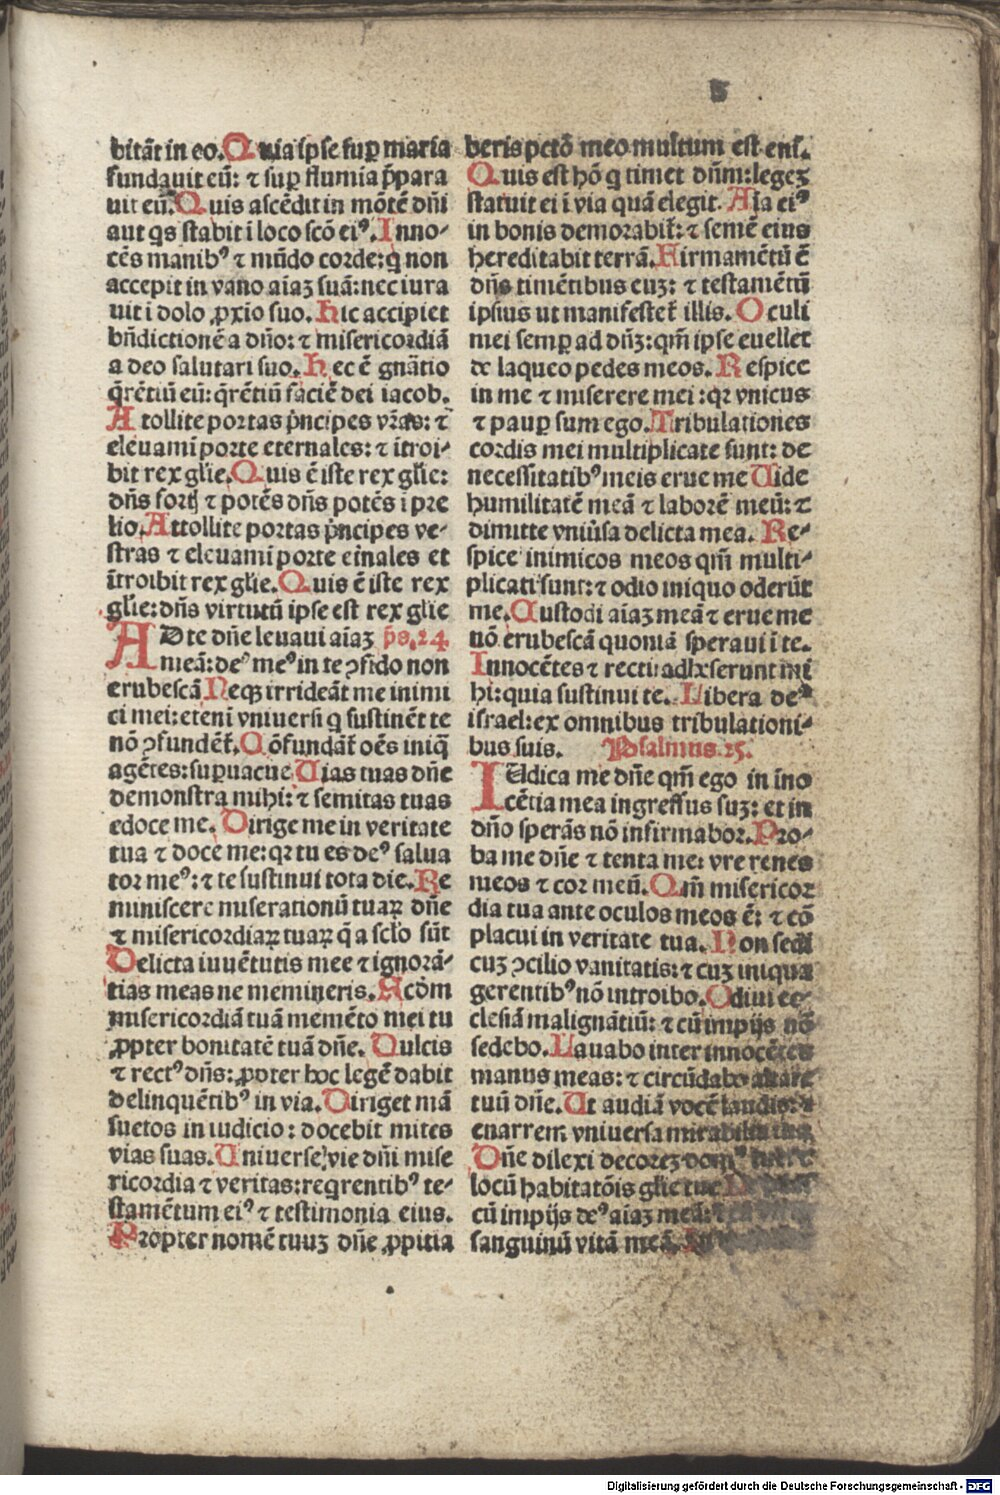 5
bitāt in eo. Quia ipse sup̱ maria
fundauit eū: ⁊ sup̱ flumia p̄para
uit eū. Quis ascēdit in mōtē dn̄i
aut qs stabit ī loco scō eiꝰ. Inno⸗
cēs manibꝰ ⁊ mūdo corde: q̇ non
accepit in vano aīaꝫ suā: nec iura
uit ī dolo ꝓxīo suo. Hic accipiet
bn̄dictionē a dn̄o: ⁊ misericordiā
a deo salutari suo. Hec ē gnātio
q̄rētiū eū: q̄rētiū faciē dei iacob.
Atollite portas p̄ncipes vr̄as: ⁊
eleuamī porte eternales: ⁊ ītroi⸗
bit rex gl̄ie. Quis ē iste rex gl̄ie:
dn̄s fortꝭ ⁊ potēs dn̄s potēs ī pre
lio. Attollite portas p̄ncipes ve⸗
stras ⁊ eleuamī porte et̄nales et
ītroibit rex gl̄ie. Quis ē iste rex
gl̄ie: dn̄s virtutū ipse est rex gl̄ie
AD te dn̄e leuaui aīaꝫ p̄s. 24.
meā: deꝰ meꝰ in te ꝯfido non
erubescā Neqꝫ irrideāt me inimi
ci mei: eteni vniuersi q̇ sustinēt te
nō ꝯfundēt̄. Cōfundāt̄ oēs iniq̄
agētes: suꝑuacue Uias tuas dn̄e
demonstra mihi: ⁊ semitas tuas
edoce me. Dirige me in veritate
tua ⁊ doce me: qꝛ tu es deꝰ salua
tor meꝰ: ⁊ te sustinui tota die. Re
miniscere miserationū tuaꝝ dn̄e
⁊ misericordiaꝝ tuaꝝ q̄ a scl̄o sūt
Delicta iuuētutis mee ⁊ ignorā⸗
tias meas ne memineris. Scd̄m
misericordiā tuā memēto mei tu
ꝓpter bonitatē tuā dn̄e. Dulcis
⁊ rectꝰ dn̄s: ꝓpter hoc legē dabit
delinquētibꝰ in via. Diriget mā
suetos in iudicio: docebit mites
vias suas. Uniuerse vie dn̄i mise
ricordia ⁊ veritas: req̇rentibꝰ te⸗
stamētum eiꝰ ⁊ testimonia eius.
Propter nomē tuuꝫ dn̄e ꝓpitia
beris pctō meo multum est eni̅.
Quis est hō q̇ timet dn̄m: legeꝫ
statuit ei ī via quā elegit. Aīa eiꝰ
in bonis demorabit̄: ⁊ semē eius
hereditabit terrā. Firmamētū ē
dn̄s timētibus euꝫ: ⁊ testamētū
ipsius ut manifestet̄ illis. Oculi
mei semꝑ ad dn̄ꝫ: qm̄ ipse euellet
de laqueo pedes meos. Respice
in me ⁊ miserere mei: qꝛ vnicus
⁊ pauꝑ sum ego. Tribulationes
cordis mei multiplicate sunt: de
necessitatibꝰ meis erue me Uide
humilitatē meā ⁊ laborē meū: ⁊
dimitte vniūsa delicta mea. Re⸗
spice inimicos meos qm̄ multi⸗
plicati sunt: ⁊ odio iniquo oderūt
me. Custodi aīaꝫ meā ⁊ erue me
nō erubescā quoniā speraui ī te.
Innocētes ⁊ recti adhxserunt mi
hi: quia sustinui te. Libera deꝰ
israel: ex omnibus tribulationi⸗
bus suis. Psalmus. 25.
IUdica me dn̄e qm̄ ego in ino
cētia mea ingressus suꝫ: et in
dn̄o sperās nō infirmabor. Pro⸗
ba me dn̄e ⁊ tenta me: vre renes
meos ⁊ cor meū. Qm̄ misericor
dia tua ante oculos meos ē: ⁊ cō
placui in veritate tua. Non sedi
cuꝫ ꝯcilio vanitatis: ⁊ cuꝫ iniqua
gerentibꝰ nō introibo. Odiui ec⸗
clesiā malignātiū: ⁊ cū impijs nō
sedebo. Lauabo inter innocētes
manus meas: ⁊ circūdabo altare
tuū dn̄e. Ut audiā vocē laudis: ⁊
enarrem vniuersa mirabilia tua
Dn̄e dilexi decoreꝫ domꝰ tue: ⁊
locū habitatōis gl̄ie tue
cū impijs deꝰ aīaꝫ meā: ⁊
sanguinū vitā meā.
Digitalisierung gefördert durch die Deutsche Forschungsgemeinschaft - DFG